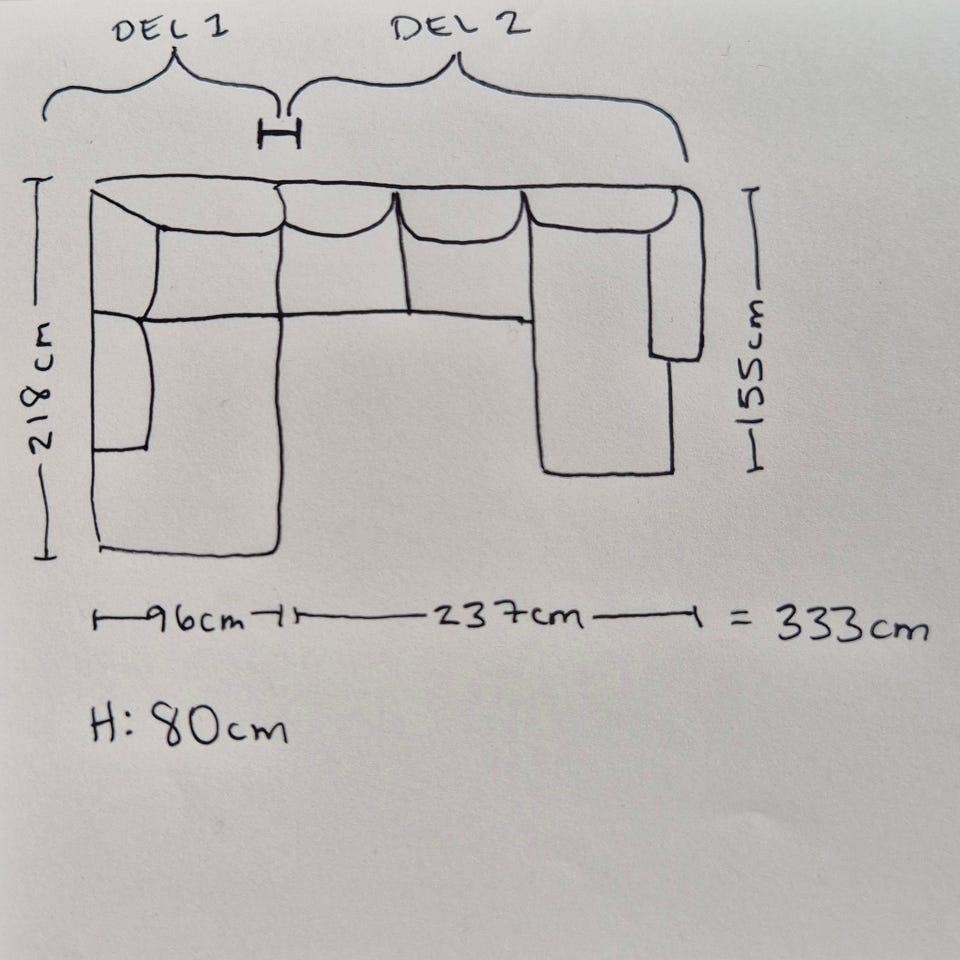 DEL 1
DEL 2
218cm
155cm
96cm
237cm = 333cm
H: 80cm